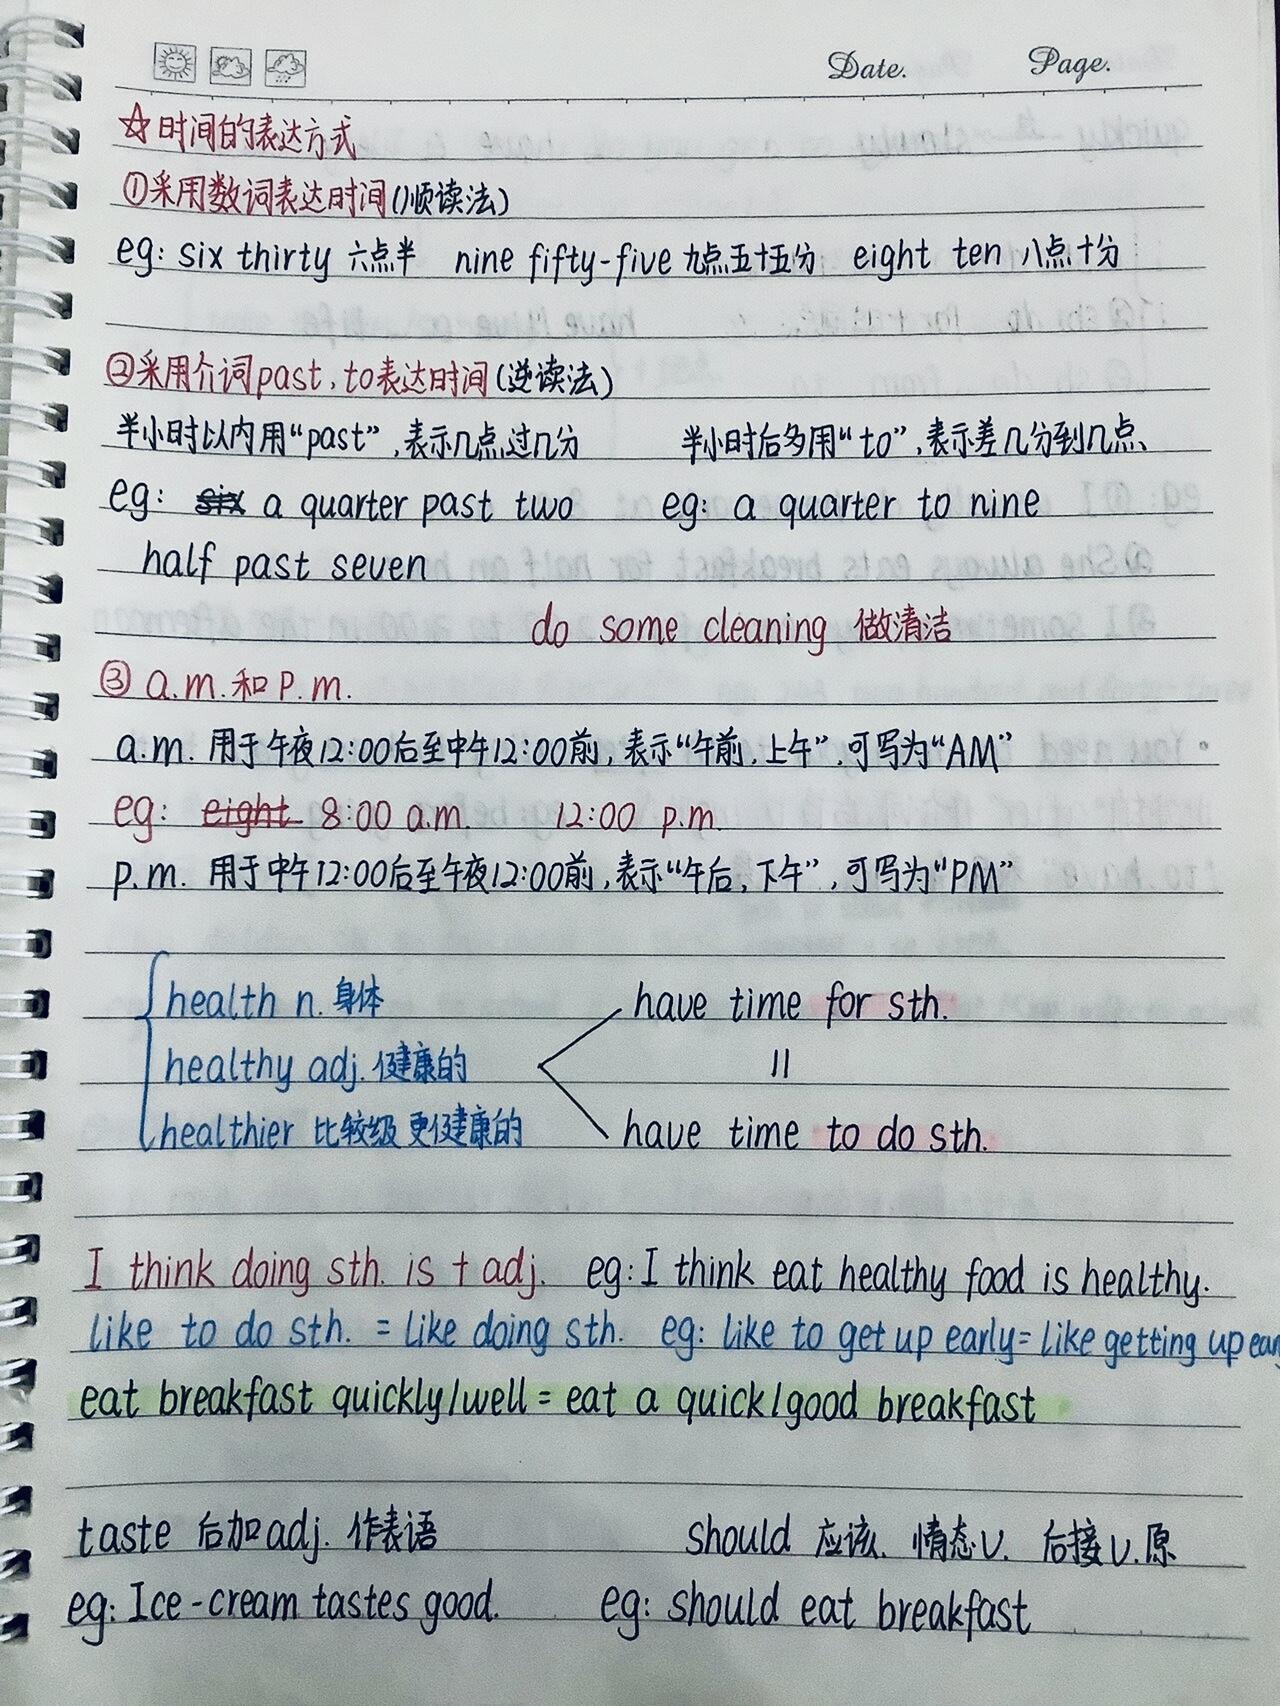 Date. Page.
☆时间的表达方式
①采用数词表达时间(顺读法)
eg: six thirty 六点半 nine fifty-five 九点五十五分 eight ten 八点十分
②采用介词past, to表达时间(逆读法)
半小时以内用“past”,表示几点过几分 半小时后多用“to”,表示差几分到几点
eg: six a quarter past two eg: a quarter to nine
half past seven
do some cleaning 做清洁
③ a.m.和 p.m.
a.m. 用于午夜12:00后至中午12:00前,表示“午前,上午”,可写为“AM”
eg: eight 8:00 a.m. 12:00 p.m.
p.m. 用于中午12:00后至午夜12:00前,表示“午后,下午”,可写为“PM”
health n. 身体 have time for sth.
healthy adj. 健康的 =
healthier 比较级 更健康的 have time to do sth.
I think doing sth. is + adj. eg: I think eat healthy food is healthy.
like to do sth. = like doing sth. eg: like to get up early = like getting up ear
eat breakfast quickly/well = eat a quick/good breakfast
taste 后加adj. 作表语 should 应该. 情态v. 后接v.原
eg: Ice-cream tastes good. eg: should eat breakfast